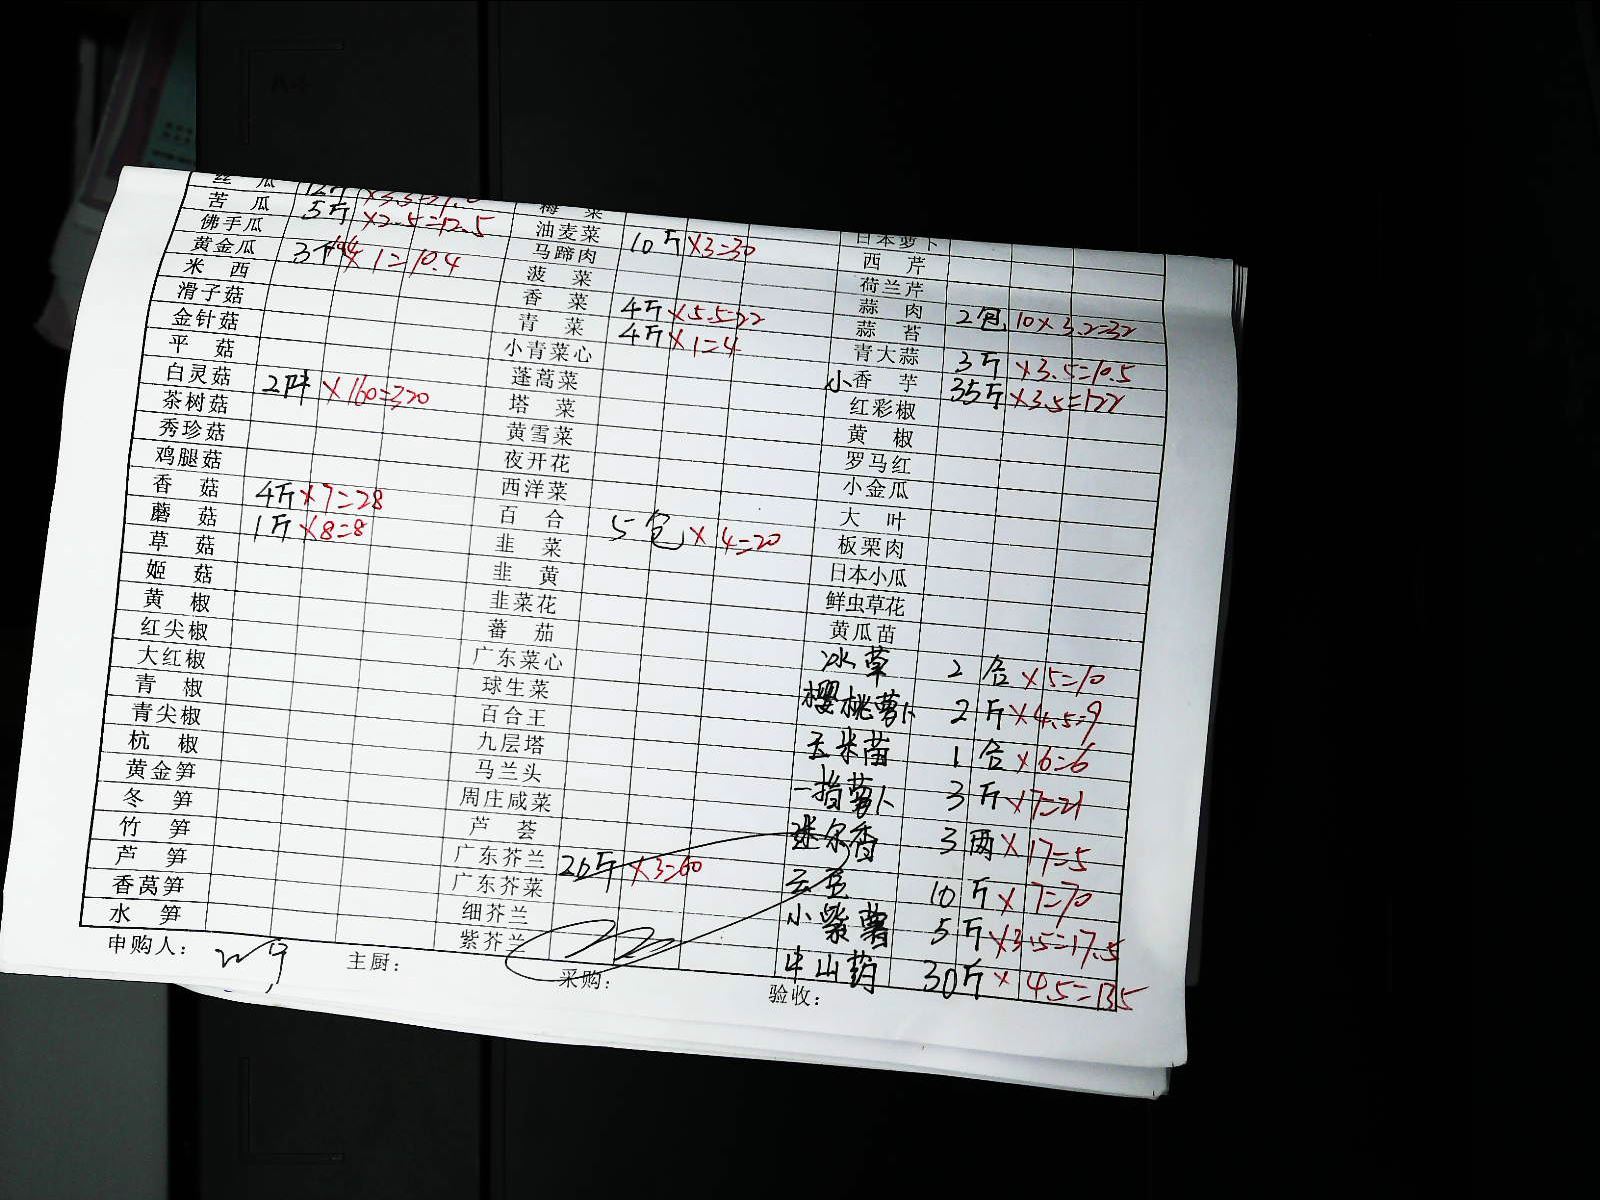 丝 瓜 12斤
苦 瓜 5斤 ×2.5=12.5
佛手瓜
黄金瓜 3个 10.4×1=10.4
米 西
滑子菇
金针菇
平 菇
白灵菇 2件 ×160=320
茶树菇
秀珍菇
鸡腿菇
香 菇 4斤×7=28
蘑 菇 1斤×8=8
草 菇
姬 菇
黄 椒
红尖椒
大红椒
青 椒
青尖椒
杭 椒
黄金笋
冬 笋
竹 笋
芦 笋
香莴笋
水 笋
梅 菜
油麦菜 10斤×3=30
马蹄肉
菠 菜
香 菜 4斤×5.5=22
青 菜 4斤×1=4
小青菜心
蓬蒿菜
塔 菜
黄雪菜
夜开花
西洋菜
百 合 5包×4=20
韭 菜
韭 黄
韭菜花
蕃 茄
广东菜心
球生菜
百合王
九层塔
马兰头
周庄咸菜
芦 荟
广东芥兰 20斤×3=60
广东芥菜
细芥兰
紫芥兰
日本萝卜
西 芹
荷兰芹
蒜 肉 2包 10×3.2=32
蒜 苔
青大蒜 3斤×3.5=10.5
小香 芋 35斤×3.5=122
红彩椒
黄 椒
罗马红
小金瓜
大 叶
板栗肉
日本小瓜
鲜虫草花
黄瓜苗
冰草 2合×5=10
樱桃萝卜 2斤×4.5=9
玉米苗 1合×6=6
一指萝卜 3斤×7=21
迷尔香 3两×17=5
云豆 10斤×7=70
小紫薯 5斤×3.5=17.5
牛山药 30斤×4.5=135
申购人: 主厨: 采购: 验收: